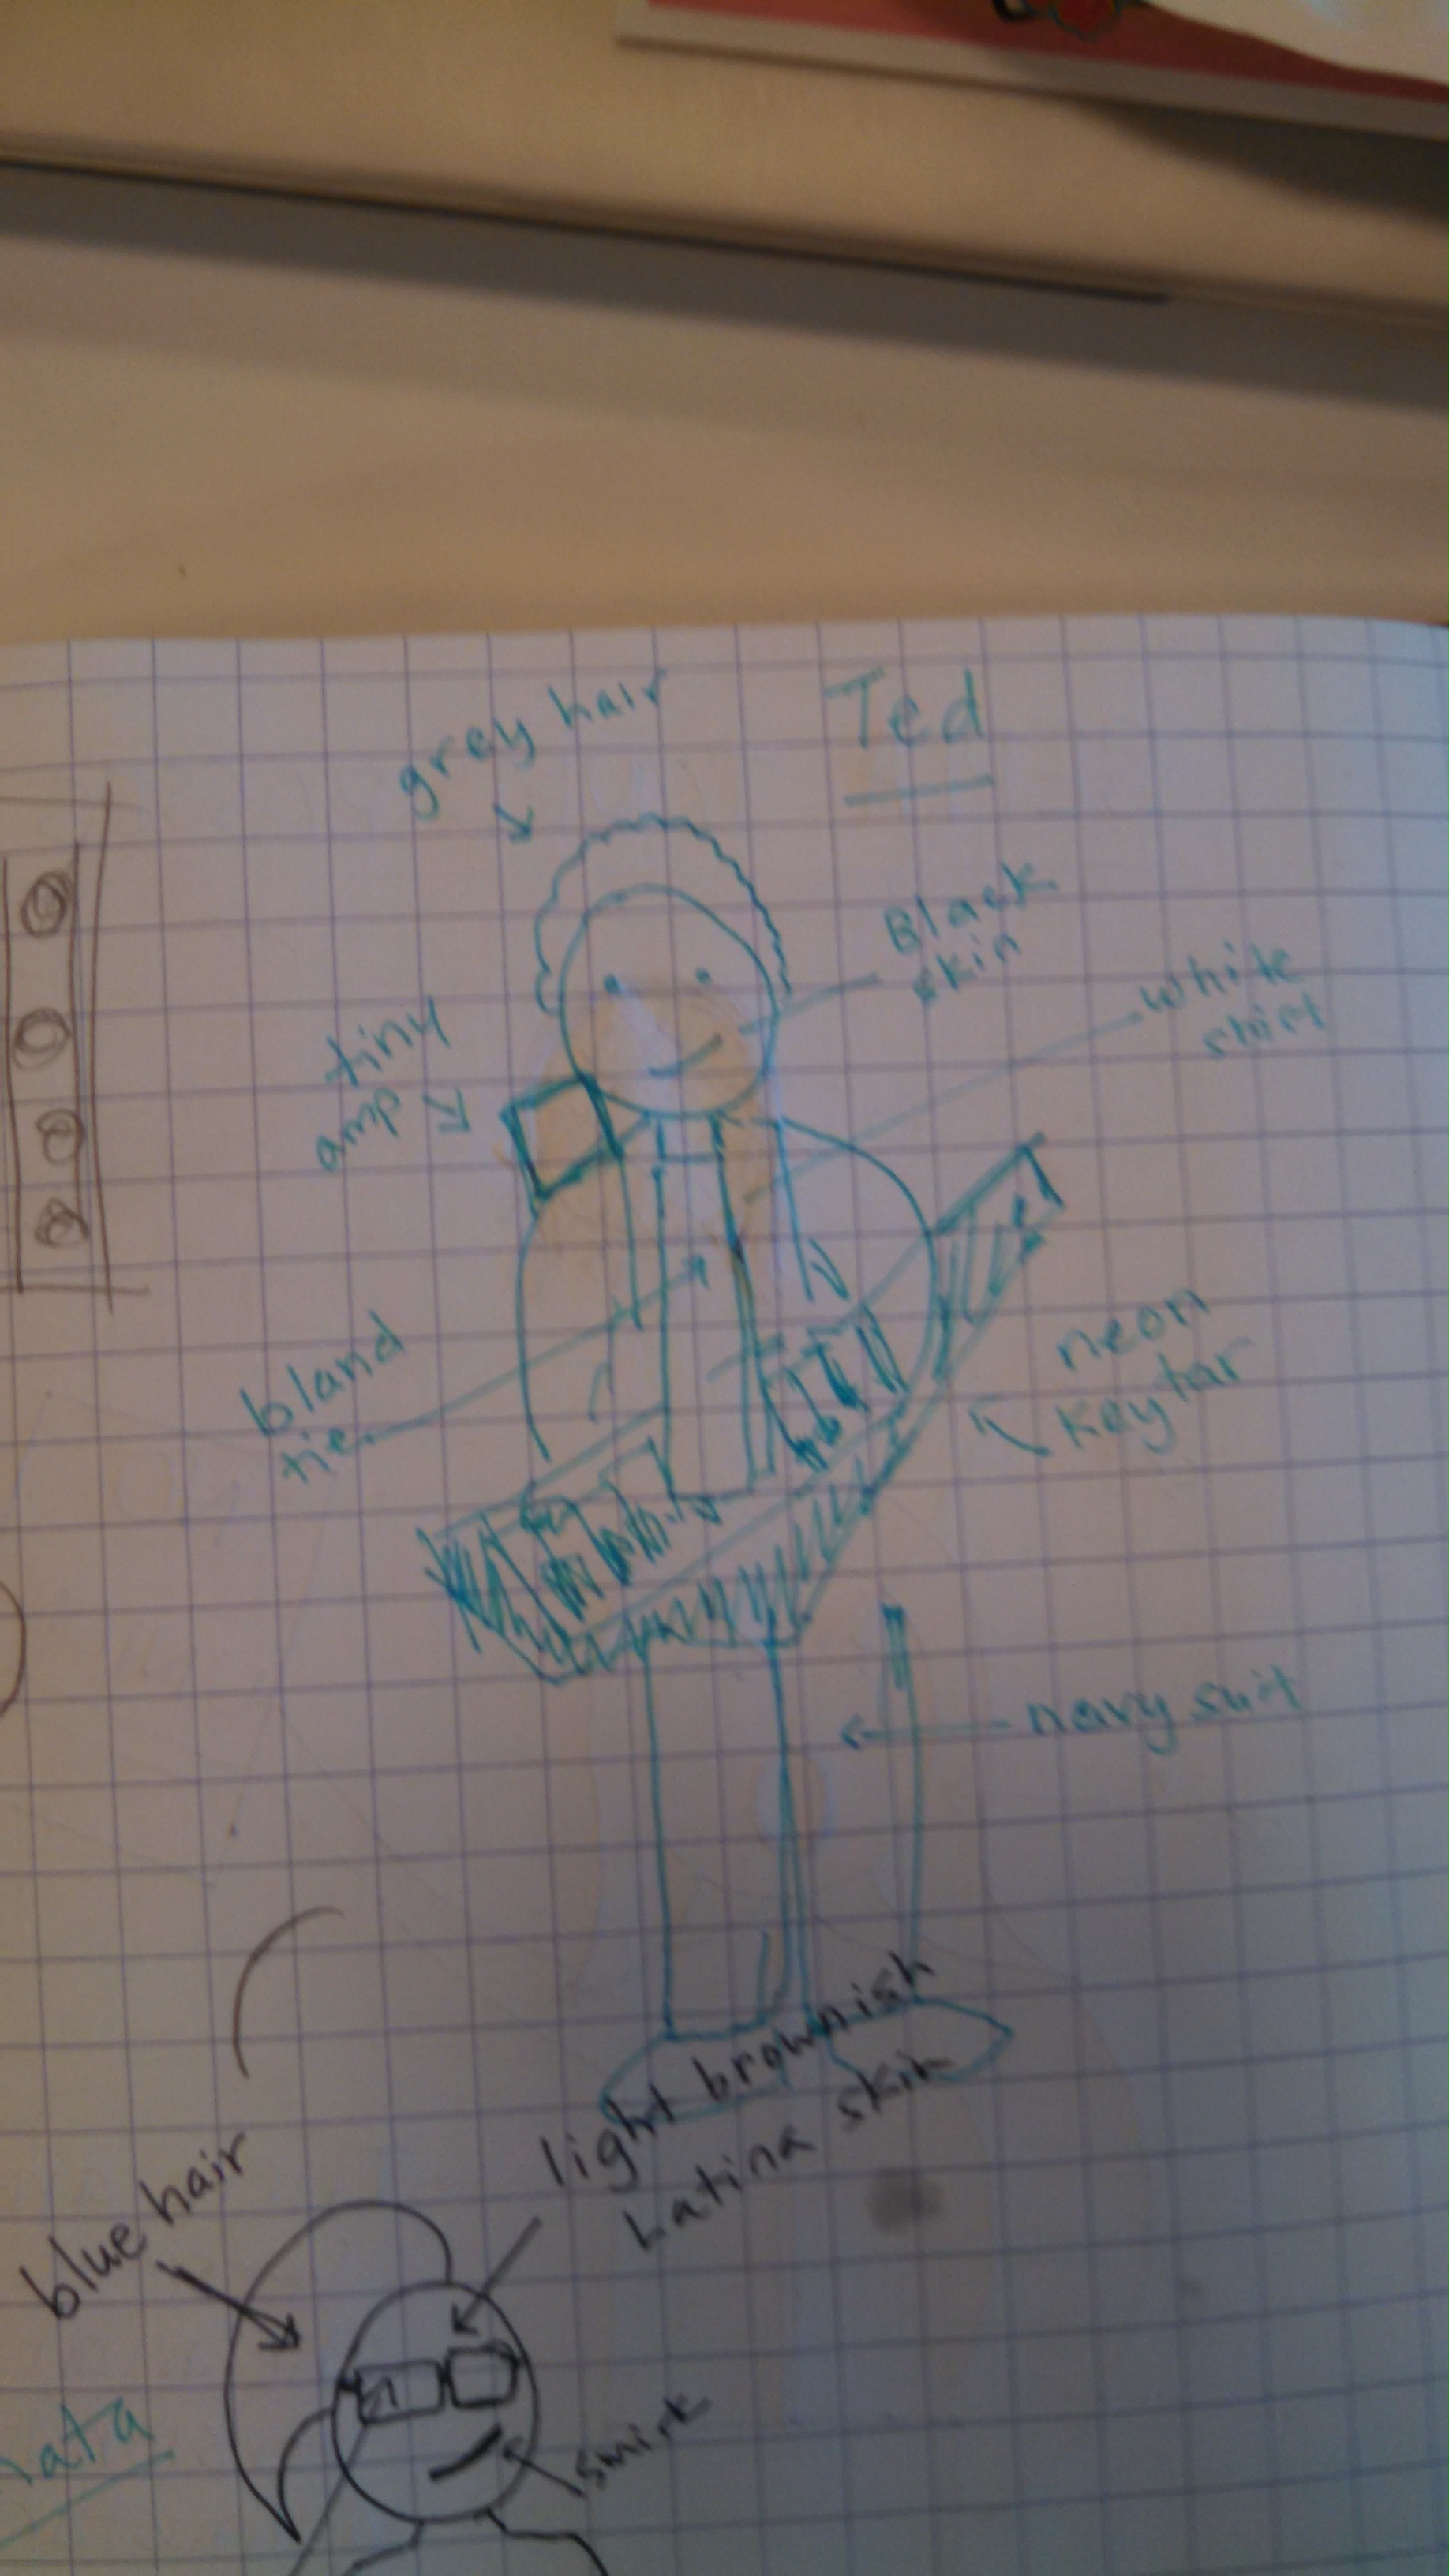 grey hair
Ted
Black
skin
white
shirt
tiny
amp
bland
tie
neon
keytar
navy suit
light brownish
Latina skin
blue hair
smirk